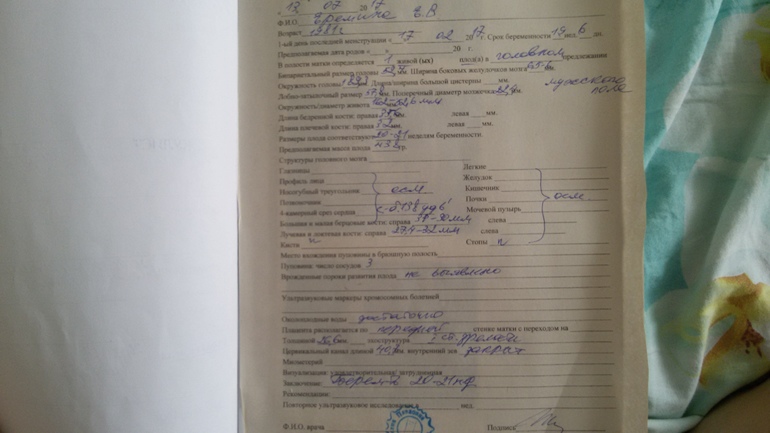 13 07 2017
Ф.И.О. Еремина Е.В
Возраст 1981г
1-ый день последней менструации « 17 » 02 2017г. Срок беременности 19 нед. 6 д.
Предполагаемая дата родов « » 20 г.
В полости матки определяется 1 живой (ых) плод(а) в головном предлежании
Бипариетальный размер головы мм. Ширина боковых желудочков мозга мм.
мужского пола
Окружность головы мм. Длина/ширина большой цистерны мм.
Лобно-затылочный размер мм. Поперечный диаметр мозжечка мм.
Окружность/диаметр живота мм
Длина бедренной кости: правая мм. левая мм.
Длина плечевой кости: правая мм. левая мм.
Размеры плода соответствуют 20-21 неделям беременности.
Предполагаемая масса плода гр.
Структуры головного мозга
Глазницы Легкие
Профиль лица Желудок
Носогубный треугольник осм Кишечник
Позвоночник Почки осм.
4-камерный срез сердца с-б 138 уд' Мочевой пузырь
Большая и малая берцовые кости: справа мм слева
Лучевая и локтевая кости: справа мм слева
Кисти N Стопы N
Место вхождения пуповины в брюшную полость
Пуповина: число сосудов 3
Врожденные пороки развития плода не выявлено
Ультразвуковые маркеры хромосомных болезней
Околоплодные воды достаточно
Плацента располагается по передней стенке матки с переходом на
Толщиной мм. эхоструктура
Цервикальный канал длиной мм. внутренний зев закрыт
Миометрий
Визуализация: удовлетворительная/ затрудненная
Заключение: 20-21нд
Рекомендации:
Повторное ультразвуковое исследование в нед.
Ф.И.О. врача Подпись